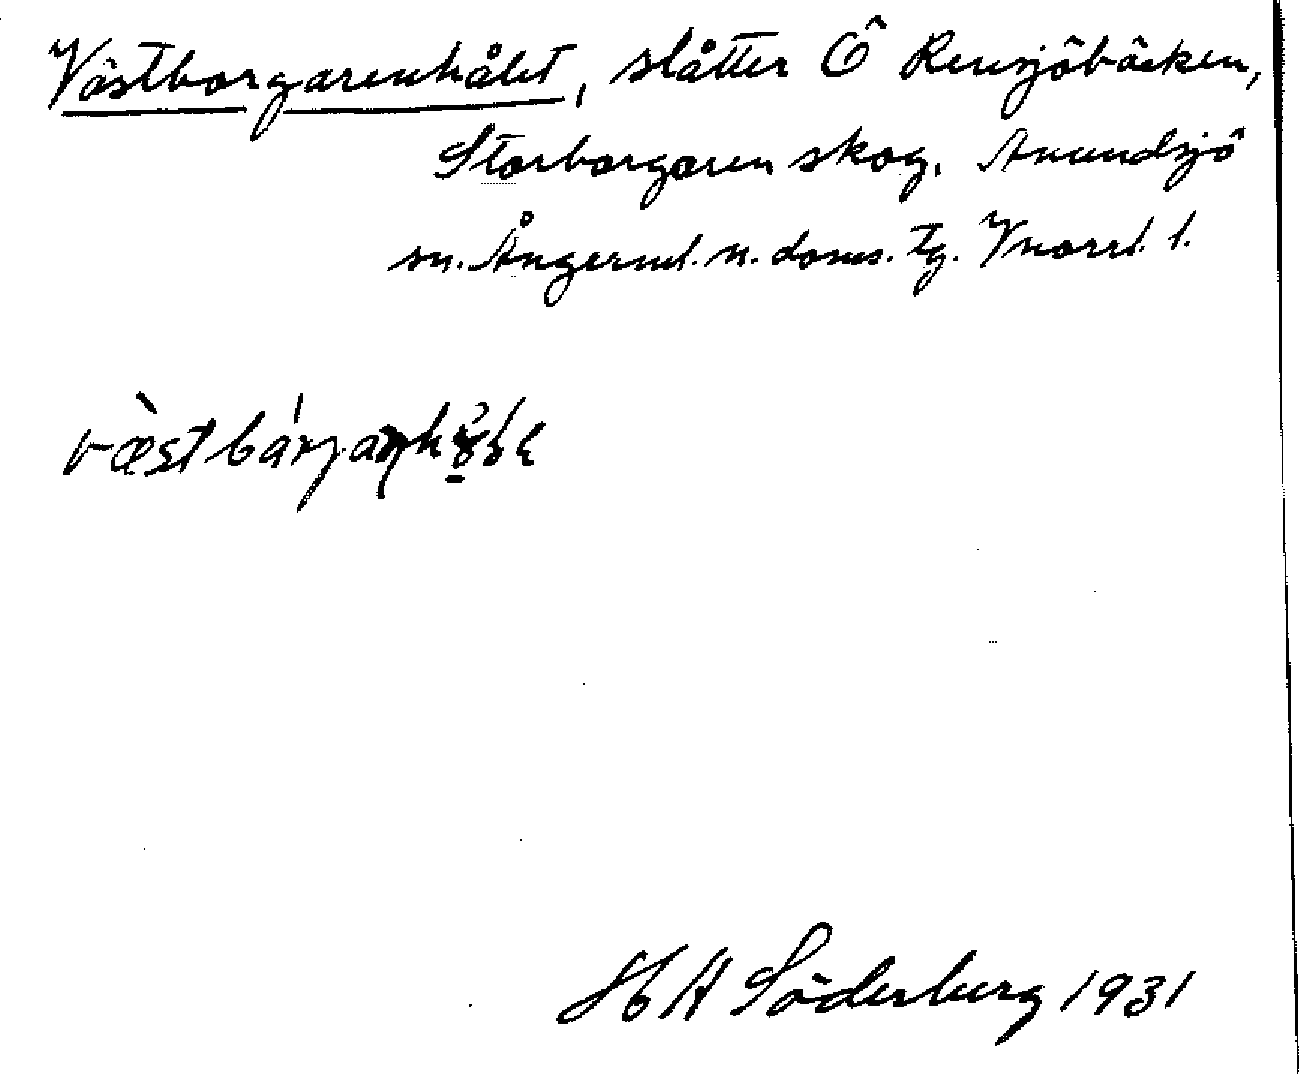 Västborgarenhålet, slåtter Ö Rensjöbäcken,
Storborgaren skog, Anundsjö
sn. Ångerml. n. doms. tg. Vnorrl. l.
H A Söderberg 1931